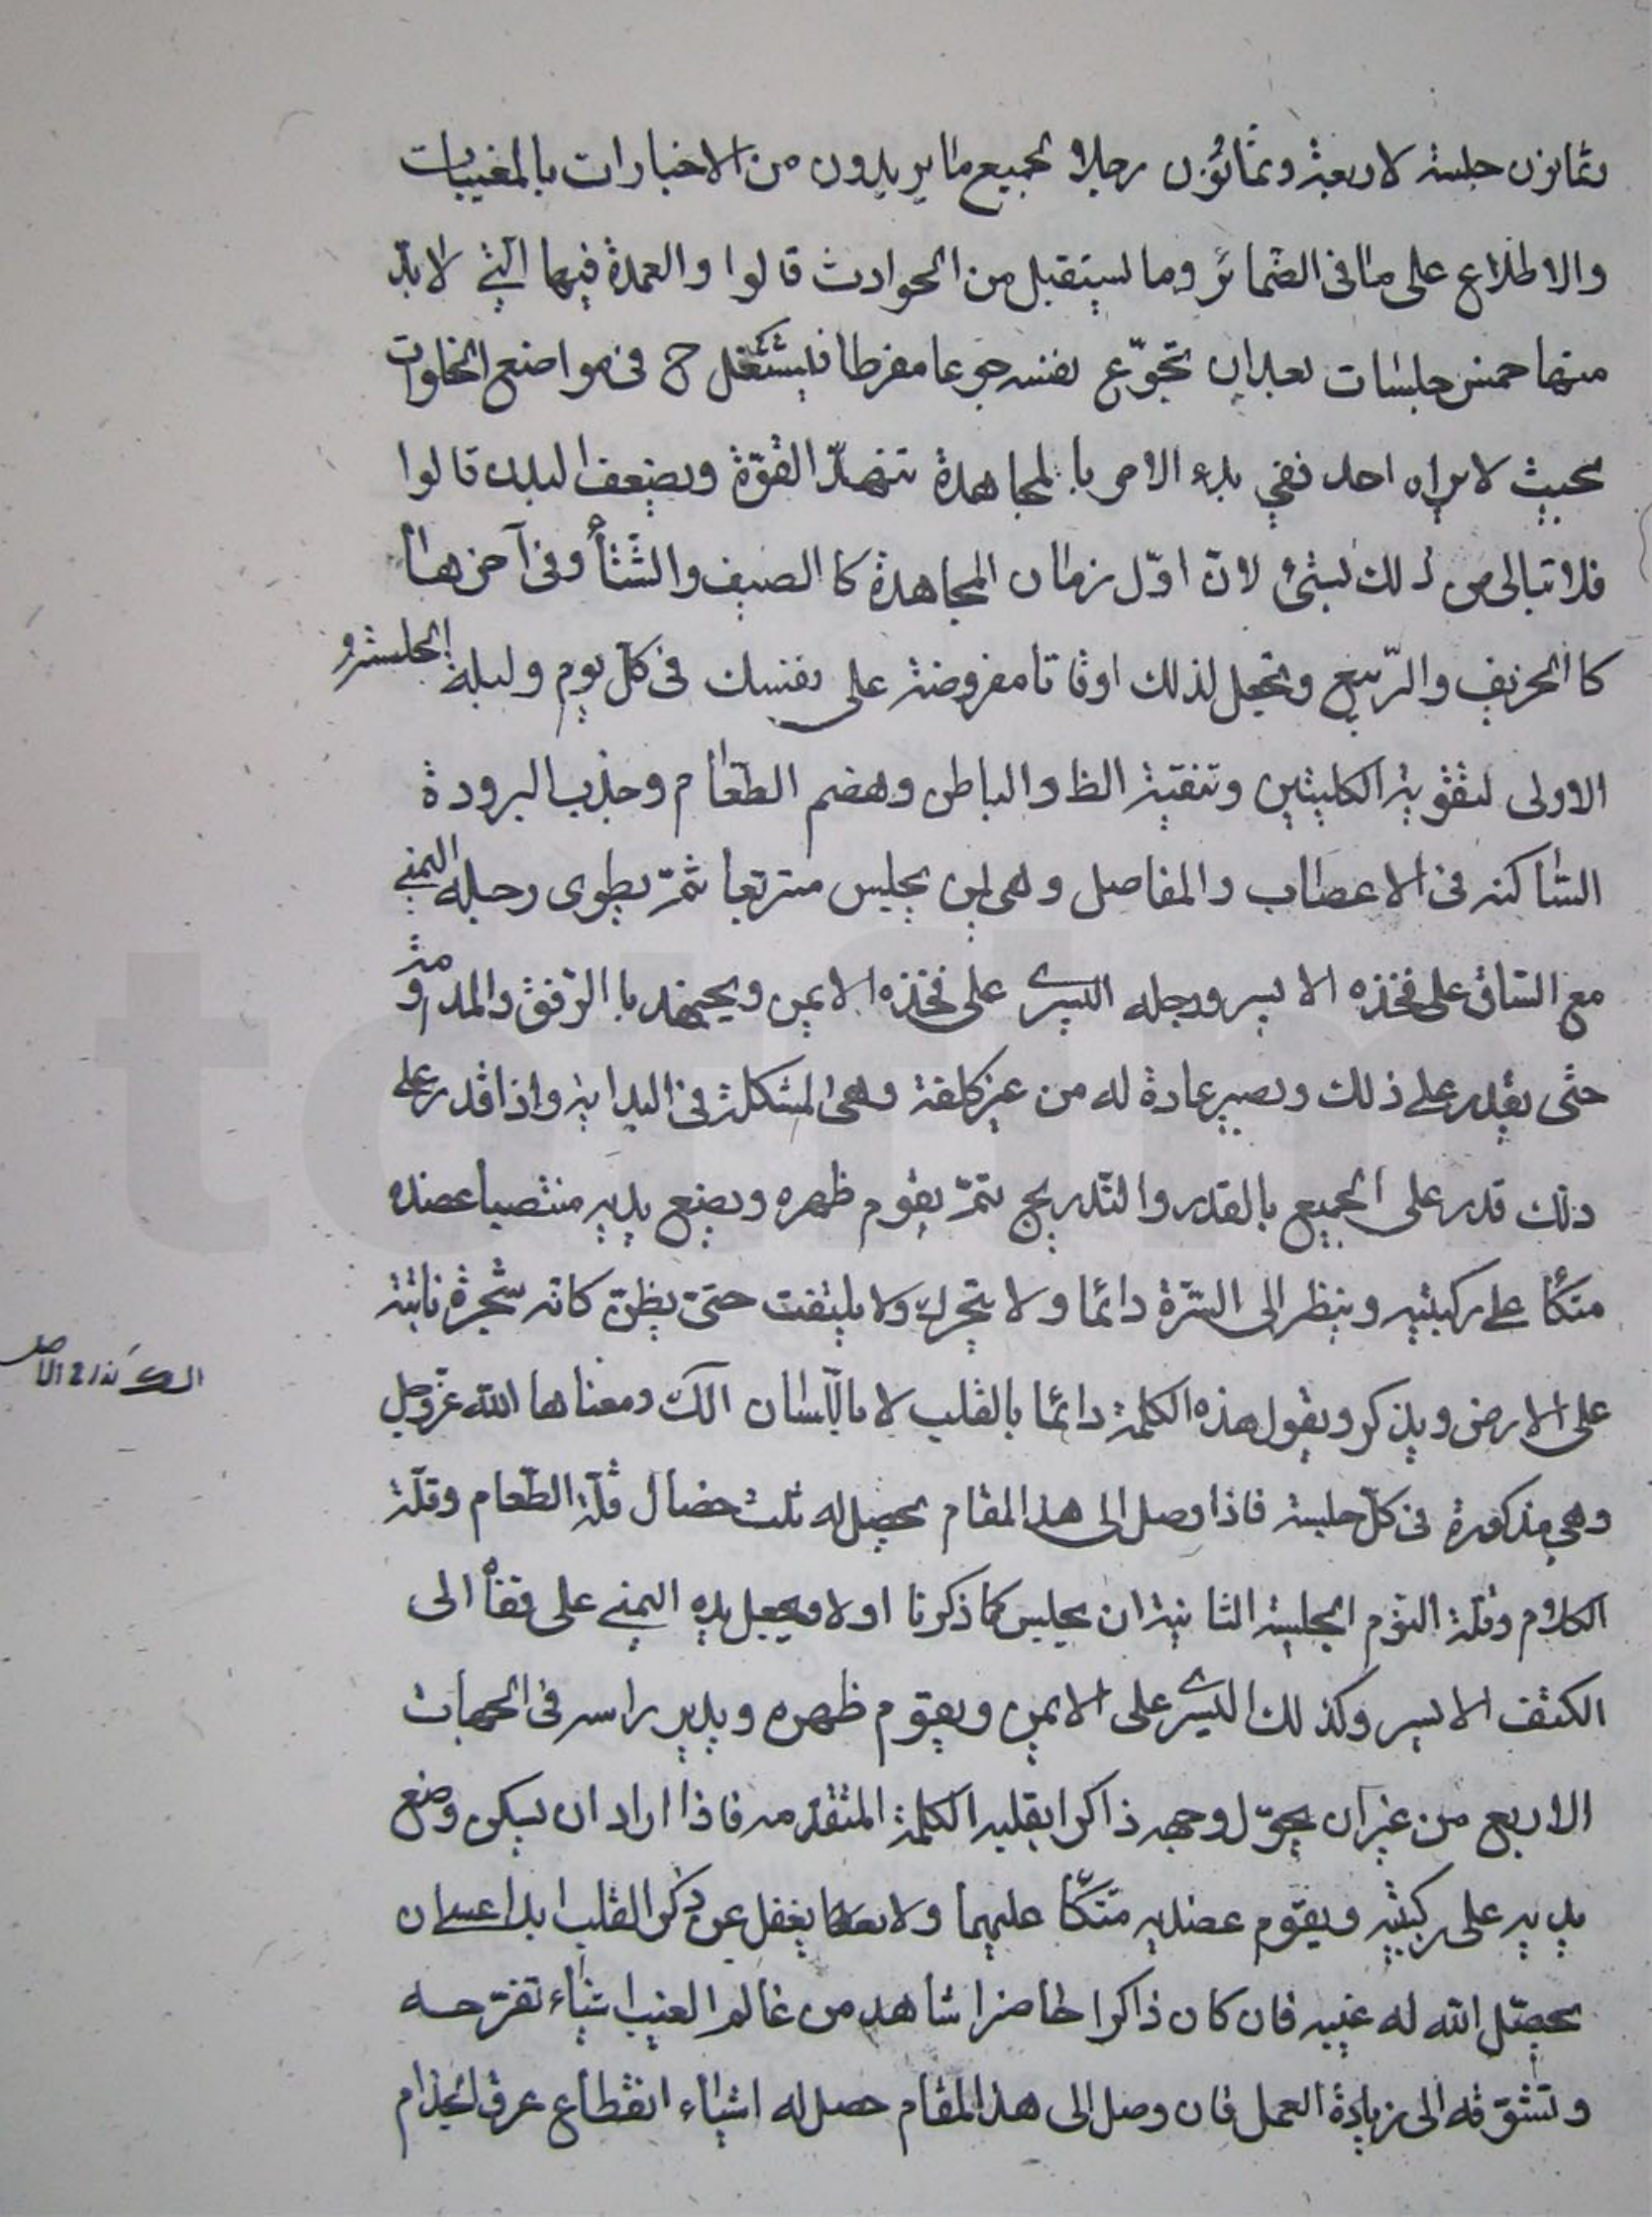 وثمانون جلسة لاربعة وثمانون رجلا لجميع ما يريدون من الاخبارات بالمغيبات
والاطلاع على ما فى الضمائر وما يستقبل من الحوادث قالوا والعمدة فيها التي لا بدّ
منها خمس جلسات بعد ان تجوّع نفسه جوعا مفرطا فليشتغل ح فى مواضع الخلوات
بحيث لا يراه احد ففي بدء الامر با لمجاهدة تنهدّ القوّة ويضعف البدن قالوا
فلا تبالى من ذلك بشئ لانّ اوّل زمان المجاهدة كا الصيف والشتأ وفى آخرها
كا الخريف والرّبيع وتجعل لذلك اوقاتا مفروضة على نفسك فى كلّ يوم وليلة الجلسة
الاولى لتقوية الكليتين وتنقية الظ والباطن وهضم الطعام وجذب البرودة
الساكنة فى الاعصاب والمفاصل وهى ان يجلس متربّعا ثمّ يطوى رجله اليمني
مع الساق على فخذه الايسر ورجله اليسرى على فخذه الايمن ويجتهد با الرّفق والمداومة
حتّى يقدر على ذلك ويصير عادة له من غير كلفة وهى المشكلة فى البداية واذا قدر على
ذلك قدر على الجميع بالقدر والتّدريج ثمّ يقوم ظهره ويضع يديه منتصبا عضده
متكأ على ركبتيه وينظر الى السرّة دائما ولا يتحرك ولا يلتفت حتى يظنّ كانه شجرة نابتة
على الارض ويذكر ويقول هذه الكلمة دائما بالقلب لا باللّسان الك ومعناها الله عزّوجل
الك كذا فى الاصل
وهى مذكورة فى كلّ جلسة فاذا وصل الى هذا المقام يحصل له ثلث خصال قلّة الطّعام وقلّة
الكلام وقلة النوم الجلسة الثانية ان يجلس كما ذكرنا اولا ويجعل يده اليمني على قفأه الى
الكتف الايسر وكذلك اليسرى على الايمن ويقوم ظهره ويدير راسه فى الجهات
الاربع من غير ان يحوّل وجهه ذاكرا بقلبه الكلمة المتقدمه فاذا اراد ان يسكن وضع
يديه على ركبتيه ويقوم عضديه متكّأ عليهما ولا يغفل عن ذكر القلب ابدا
يحصّل الله له غيبه فان كان ذاكرا حاضرا شاهد من عالم الغيب اشياء تفرّحه
وتشوّقه الى زيادة العمل فان وصل الى هذا المقام حصل له اشياء انقطاع عرق الجذام